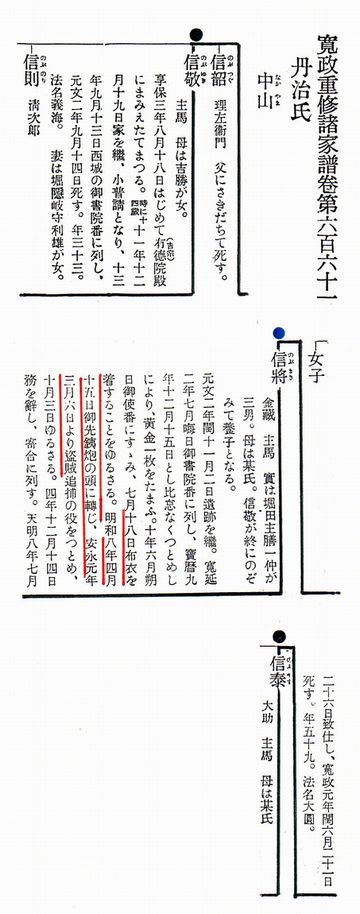 寛政重修諸家譜卷第六百六十一
丹治氏
中山
なかやま
信韶
のぶつぐ
理左衞門　父にさきだちて死す。
信敬
のぶゆき
主馬　母は吉勝が女。
享保三年八月十八日はじめて有德院殿
(吉宗)
にまみえたてまつる。時に十四歳十一年十二
月十九日家を繼、小普請となり、十三
年九月十三日西城の御書院番に列し、
元文二年九月十四日死す。年三十三。
法名義海。　妻は堀隱岐守利雄が女。
信則
のぶのり
淸次郎
女子
信將
のぶまさ
金藏　主馬　實は堀田主膳一仲が
三男。母は某氏。信敬が終にのぞ
みて養子となる。
元文二年閏十一月二日遺跡を繼。寬延
二年七月晦日御書院番に列し、寶曆九
年十二月十五日とし比怠なくつとめし
により、黃金一枚をたまふ。十年六月朔
日御使番にすゝみ、七月十八日布衣を
着することをゆるさる。明和八年四月
十五日御先鐵炮の頭に轉じ、安永元年
三月六日より盜賊追捕の役をつとめ、
十月三日ゆるさる。四年十二月十四日
務を辭し、寄合に列す。天明八年七月
二十六日致仕し、寬政元年閏六月二十一日
死す。年五十九。法名大圓。
信泰
大助　主馬　母は某氏